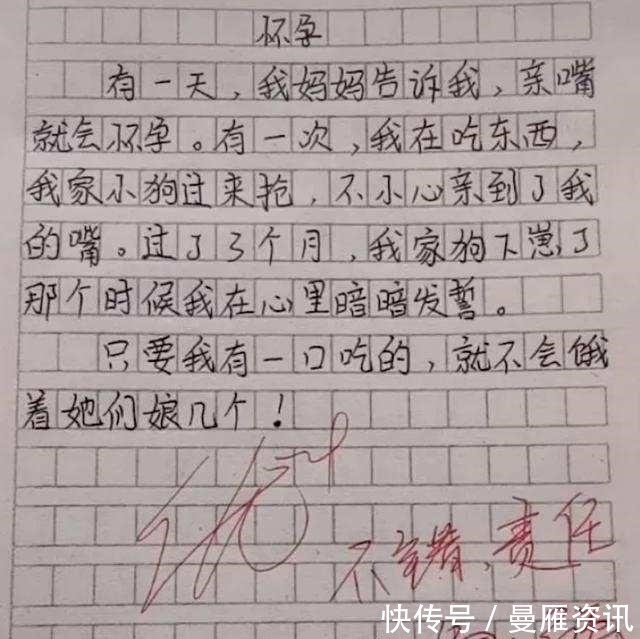 怀孕
有一天，我妈妈告诉我，亲嘴
就会怀孕。有一次，我在吃东西，
我家小狗过来抢，不小心亲到了我
的嘴。过了3个月，我家狗下崽了
那个时候我在心里暗暗发誓。
只要我有一口吃的，就不会饿
着她们娘几个！
不错，责任
快传号／曼雁资讯